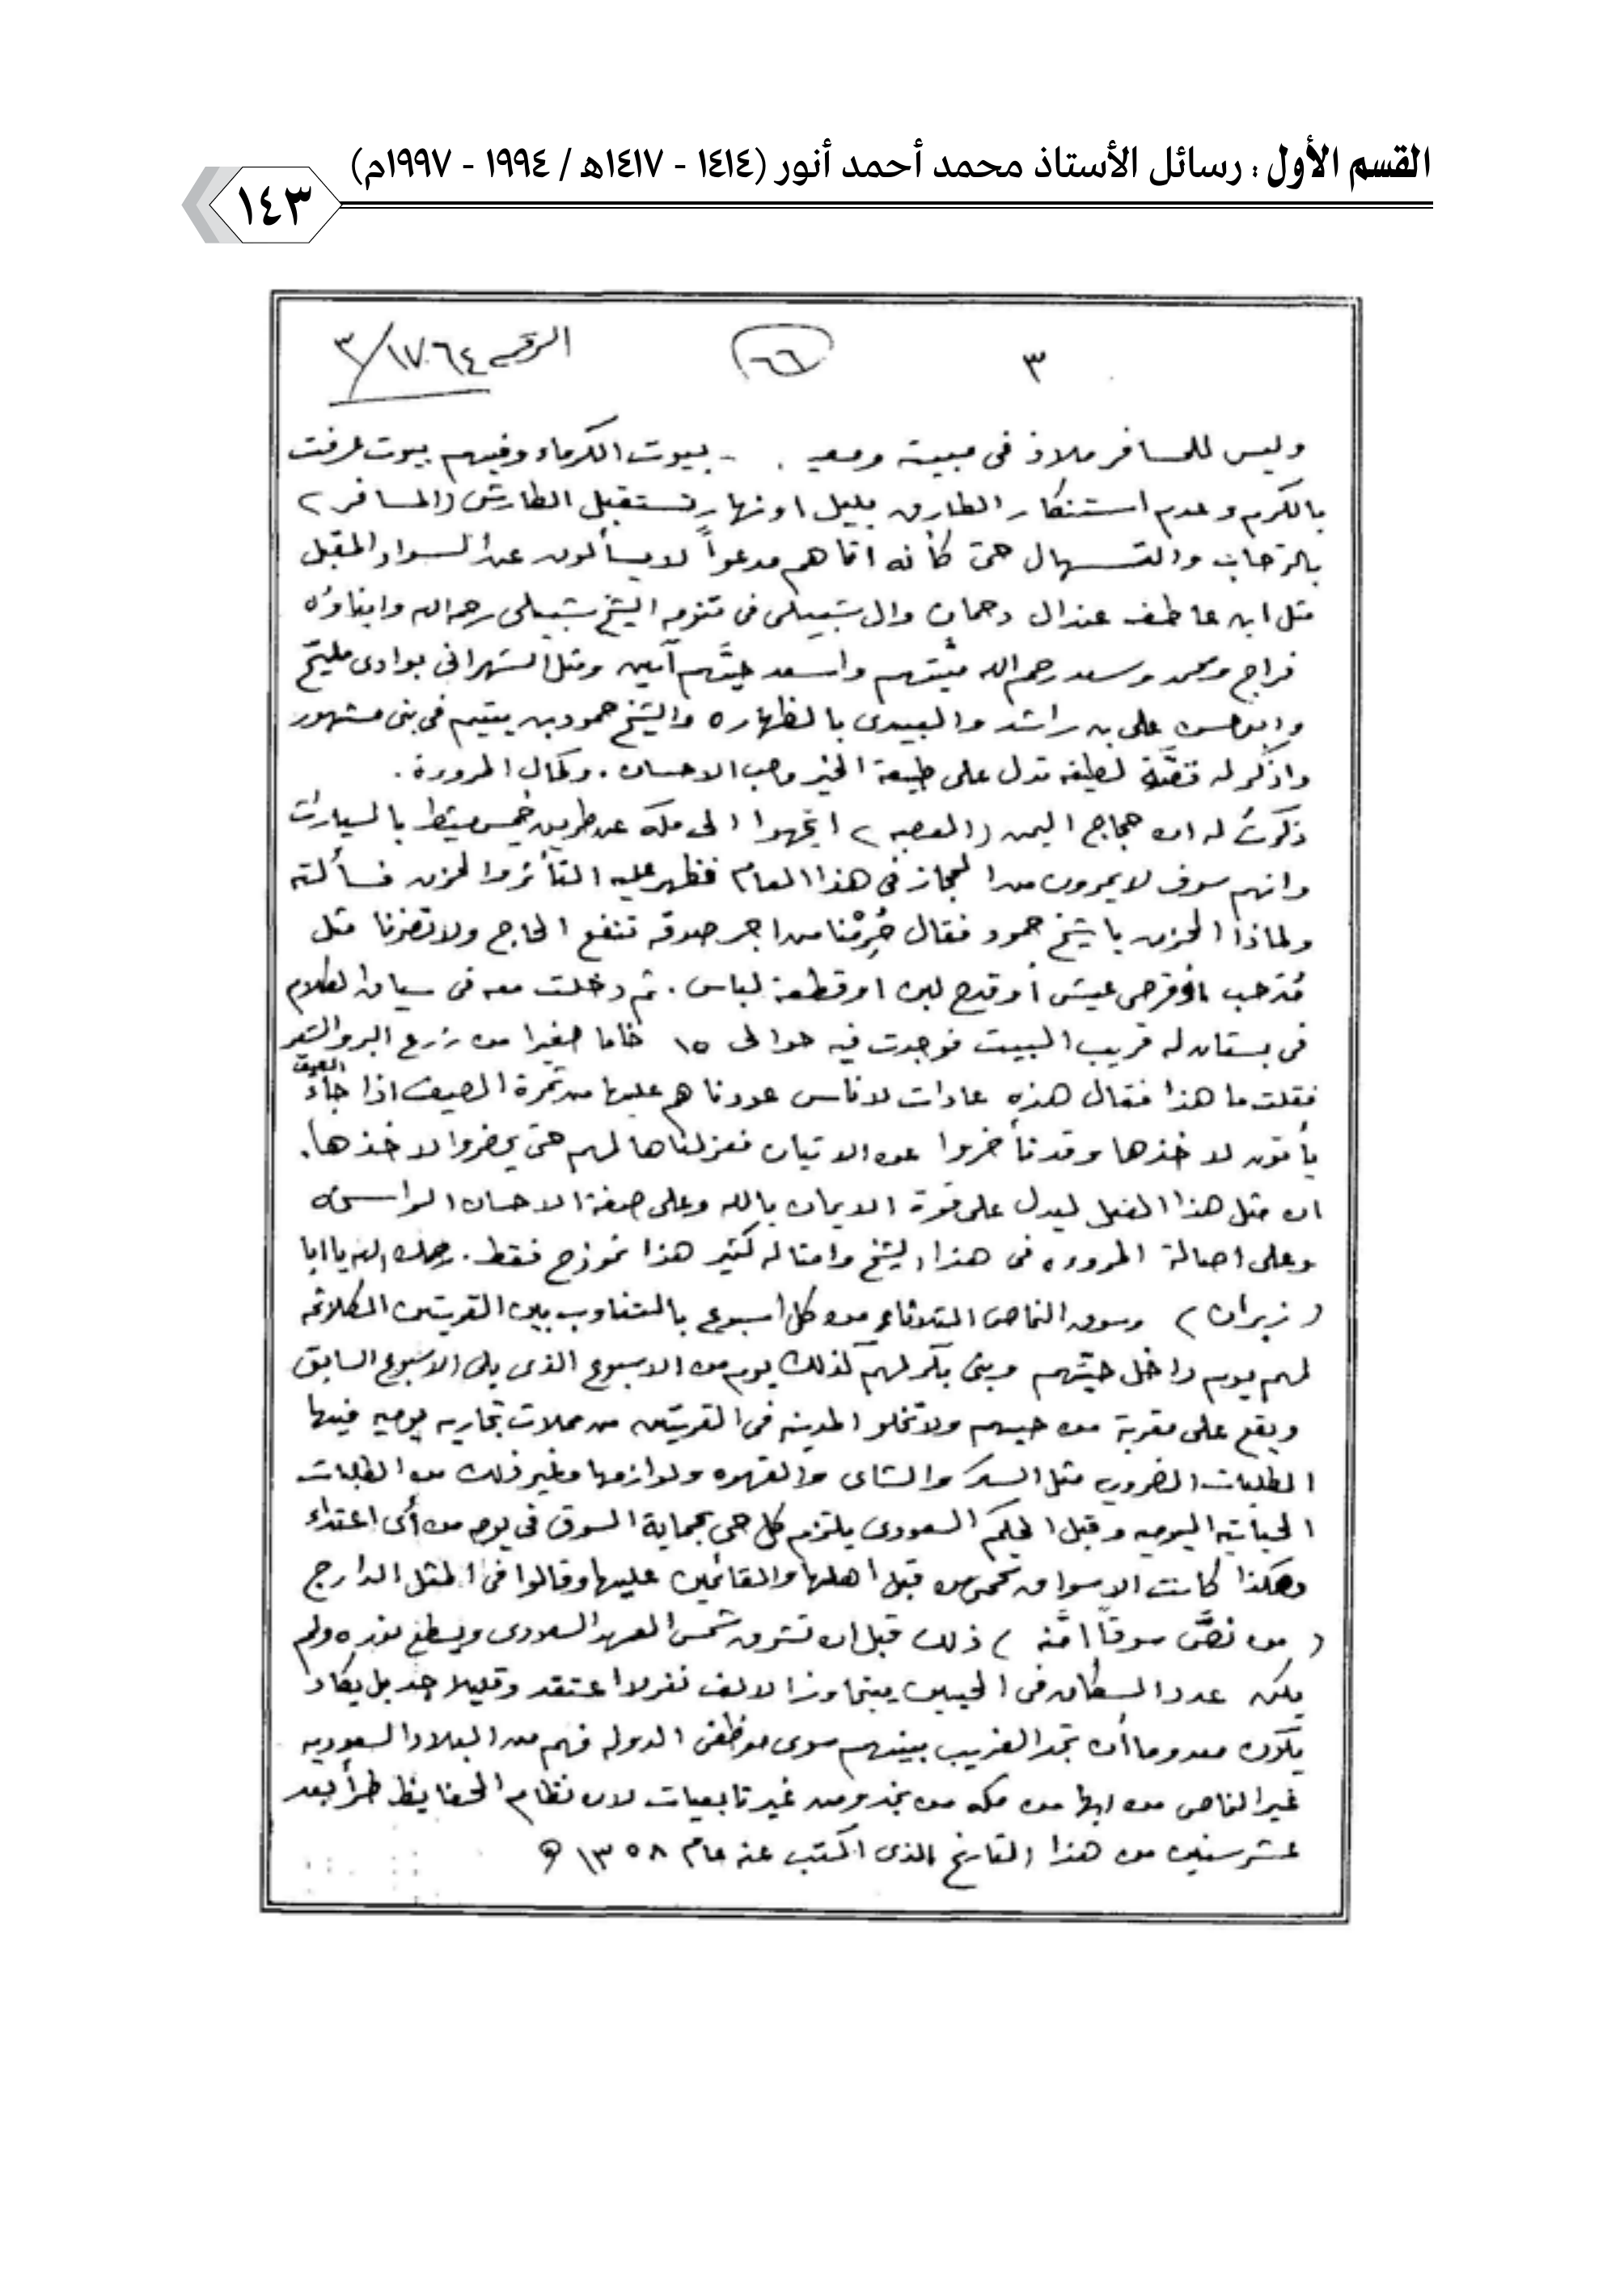 القسم الأول : رسائل الأستاذ محمد أحمد أنور (١٤١٤ - ١٤١٧هـ / ١٩٩٤ - ١٩٩٧م)
١٤٣
٣ ٦٦ الرقم ١٧٠٦٤/٣
وليس للمسافر ملاذ فى مبيته ومعيـ . - بيوت الكرماء وفيهم بيوت عرفت
بالكرم وعدم استنكار الطارق بليل او نهار تستقبل الطارش (المسافر)
بالترحاب والتسهال حتى كأنه اتاهم مدعواً لا يسألون عن السواد المقبل
مثل ابن عاطف عندال دحمان وال شبيلى فى تنومه الشيخ شبيلى رحمه الله وابناؤه
فراج ومحمد وسعد رحم الله ميّتهم واسعد حيّهم آمين ومثل الشهرانى بوادى مليّح
وابو حسن على بن راشد والعبيدى بالظهاره والشيخ حمود بن يتيم فى بنى مشهور
واذكر له قصّة لطيفه تدل على طبيعة الخير وحب الاحسان . وكمال المرورة .
ذكرتُ له ان حجاج اليمن (العصبه) اتجهوا الى مكه عن طريق خميس مشيط بالسيارات
وانهم سوف لا يمرون من الحجاز فى هذا العام فظهر عليه التأثر والحزن فسألته
ولماذا الحزن يا شيخ حمود فقال حُرِمْنا من اجر صدقه تنفع الحاج ولا تضرنا مثل
مُدّ حب او قرص عيش أو قدح لبن او قطعة لباس . ثم دخلت معه فى سياق الكلام
فى بستان له قريب البيت فوجدت فيه حوالى ١٥ خاما صغيرا من زرع البر والشعير
فقلت ما هذا فقال هذه عادات لاناس عودناهم عليها من ثمرة الصيف اذا جاء الصيف
يأتون لاخذها وقد تأخروا عن الاتيان فعزلناها لهم حتى يحضروا لاخذها .
ان مثل هذا الفعل ليدل على قوة الايمان بالله وعلى صفة الاحسان الراسخه
وعلى اصالة المروره فى هذا الشيخ وامثاله كثير هذا نموذج فقط . رحمك الله يا ابا
(زبران) وسوق النماص الثلاثاء من كل اسبوع بالتناوب بين القريتين الكلاثمه
لهم يوم داخل حيّهم وبنى بكر لهم كذلك يوم من الاسبوع الذى يلى الاسبوع السابق
ويقع على مقربة من حيهم ولا تخلو المدينه فى القريتين من محلات تجاريه يوميه فيها
الطلبات الضروريه مثل السكر والشاى والقهوه ولوازمها وغير ذلك من الطلبات
الحياتيه اليوميه وقبل الحكم السعودى يلتزم كل حى بحماية السوق فى يومه من أى اعتداء
وهكذا كانت الاسواق تحمى من قبل اهلها والقائمين عليها وقالوا فى المثل الدارج
(من نصَّ سوقاً امّنه) ذلك قبل ان تشرق شمس العهد السعودى ويسطع نوره ولم
يكن عدد السكان فى الحيين يتجاوز الالف نفر لا اعتقد وقليلا جد بل يكاد
يكون معدوما أن تجد الغريب بينهم سوى موظفى الدوله فهم من البلاد السعوديه
غير النماص من ابها من مكه من نجد ومن غير تابعيات لان نظام الحفايظ طرأ بعد
عشر سنين من هذا التاريخ الذى اكتب عنه عام ١٣٥٨ هـ